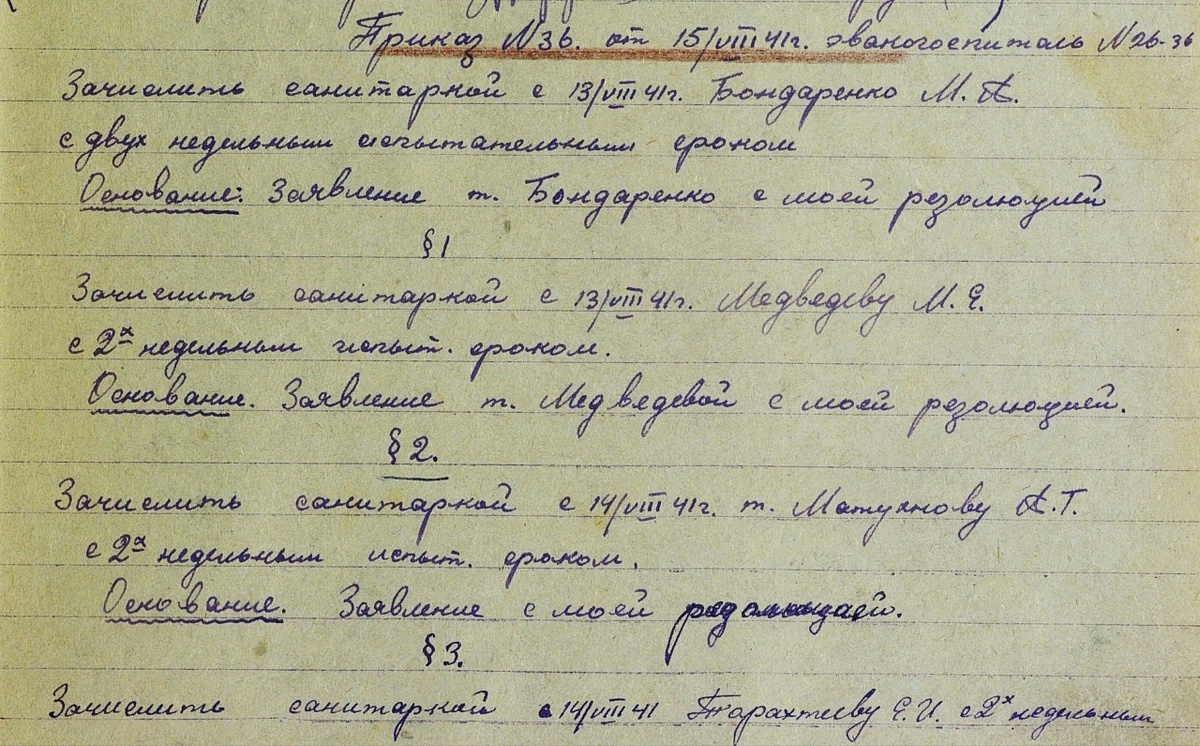 Приказ N36. от 15/VIII 41г. эвакогоспиталь N 26-36
Зачислить санитаркой с 13/VIII 41г. Бондаренко М. А.
с двух недельным испытательным сроком
Основание: Заявление т. Бондаренко с моей резолюцией
§1
Зачислить санитаркой с 13/VIII 41г. Медведеву М. Е.
с 2х недельным испыт. сроком.
Основание. Заявление т. Медведевой с моей резолюцией.
§2.
Зачислить санитаркой с 14/VIII 41г. т. А.Г.
с 2х недельным испыт. сроком.
Основание. Заявление с моей резолюцией.
§3.
Зачислить санитаркой с 14/VIII 41 Е.И. с 2х недельным